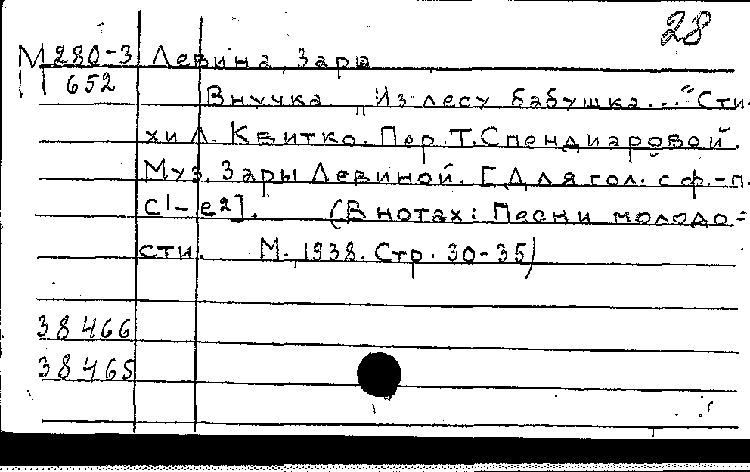 28
М 280-3 Левина Зара
652
Внучка "Из лесу бабушка..." Сти-
хи Л. Квитко. Пер. Т. Спендиаровой.
Муз. Зары Левиной. [Для гол. с ф.-п.
c¹-e²]. (В нотах: Песни молодо=
сти. М. 1938. Стр. 30-35)
38466
38465